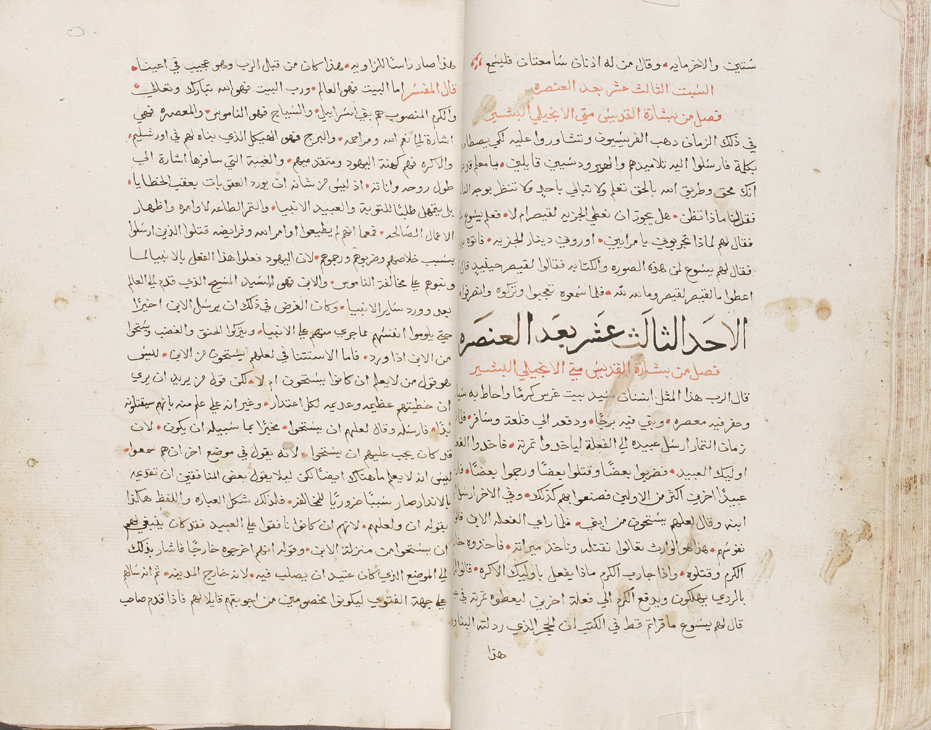 ستين والاخر مايه وقال من له اذنان سامعتان فليسمع
السبت الثالث عشر بعد العنصره
فصل من بشارة القديس متي الانجيلي البشير
في ذلك الزمان ذهب الفريسيون وتشاوروا عليه لكي يصطا
بكلمة فارسلوا اليه تلاميذهم والهيرودسيين قايلين يا معلم قد
انك محق وطريق الله بالحق تعلم ولا تبالي باحد ولا تنظر بوجه
فقل لنا ماذا تظن هل يجوز ان نعطي الجزيه لقيصر ام لا فعلم يسوع
فقال لهم لماذا تجربوني يا مرايين اوروني دينار الجزيه فاتوه
فقال لهم يسوع لمن هذه الصوره والكتابه فقالوا لقيصر حينيذ قال
اعطوا ما لقيصر لقيصر وما لله لله فلما سمعوه تعجبوا وتركوه وانصرفوا
الاحد الثالث عشر بعد العنصره
فصل من بشارة القديس متي الانجيلي البشير
قال الرب هذا المثل انسان سيد بيت غرس كرمًا واحاط به
وحفر فيه معصره وبني فيه برجًا ودفعه الي فلعة وسافر
زمان الثمار ارسل عبيده الي الفعلة لياخدوا ثمرته فاخدوا
اوليك العبيد فضربوا بعضًا وقتلوا بعضًا ورجموا بعضًا
عبيدًا اخرين اكثر من الاولين فصنعوا بهم كذلك وفي الاخر ارسل
ابنه وقال لعلهم يستحون من ابني فلما راي الفعله الابن
نفوسهم هذا هو الوارث تعالوا نقتله وناخد ميراثه فاخذوه
الكرم وقتلوه واذا جا رب الكرم ماذا يفعل باوليك الاكره
بالردي يهلكون ويدفع الكرم الي فعلة اخرين ليعطوه ثمرته في
قال لهم يسوع ما قراتم قط في الكتب ان الحجر الذي ردلته
هذا
هذا صار راسًا للزاويه هذا كان من قبل الرب وهو عجيب في اعيننا
قال المفسر اما البيت فهو العالم ورب البيت فهو الله تبارك وتعالي
والكرم المنصوب هم بني اسراييل والسياج فهو الناموس والمعصره فهي
اشارة الي الله والبرج فهو الهيكل الذي بناه لهم في اورشليم
والاكره فهم كهنة اليهود ومتقدميهم والغيبة التي سافرها اشارة الي
طول روحه واناته اذ ليس من شانه ان يورد العقوبات بعقب الخطايا
بل يتمهل طلبًا للتوبة والعبيد الانبيا والثمر الطاعه لاوامره واظهار
الاعمال الصالحه فمعما انهم لم يطيعوا اوامر الله وفرايضه قتلوا الذين ارسلوا
بسبب خلاصهم وضربوهم ورجموهم لان اليهود فعلوا هذا الفعل بالانبيا لما
علي مخالفة الناموس والابن فهو السيد المسيح الذي قدم الي العالم
بعد ورود ساير الانبيا وكان الغرض في ذلك ان يرسل الابن اخيرًا
حتي يلوموا انفسهم مما جري منهم علي الانبيا ويتركوا الحنق والغضب ويستحوا
من الابن اذا ورد فاما الاستثنا في لعلهم يستحون من الابن ليس
هو قول من لا يعلم ان كانوا يستحون ام لا لكن قول من يريد ان يري
ان خطيتهم عظيمه وعديمه لكل اعتدار وغير انه علي علم منه بانهم سيقتلونه
ايضًا فارسله وقال لعلهم ان يستحوا مخبرًا بما سبيله ان يكون لان
قد كان يجب عليهم ان يستحوا لانه يقول في موضع اخر ان هم سمعوا
ليس انه لا يعلم ما هناك ايضًا لكن ليلا يقول بعض المنافقين ان تقديمه
بالاندار صار سببًا ضروريًا للمخالفه فلذلك شكل العباره واللفظ هكدا
بقوله ان ولعلهم لانهم ان كانوا نافقوا علي العبيد فقد كان ينبغي لهم
ان يستحوا من منزلة الابن وقوله انهم اخرجوه خارجًا فاشار بذلك
الي الموضع الذي كان عتيد ان يصلب فيه لانه خارج المدينه ثم
علي جهة الفتوي ليكونوا مخصومين من اجوبتهم قايلا لهم فاذا قدم صاحب